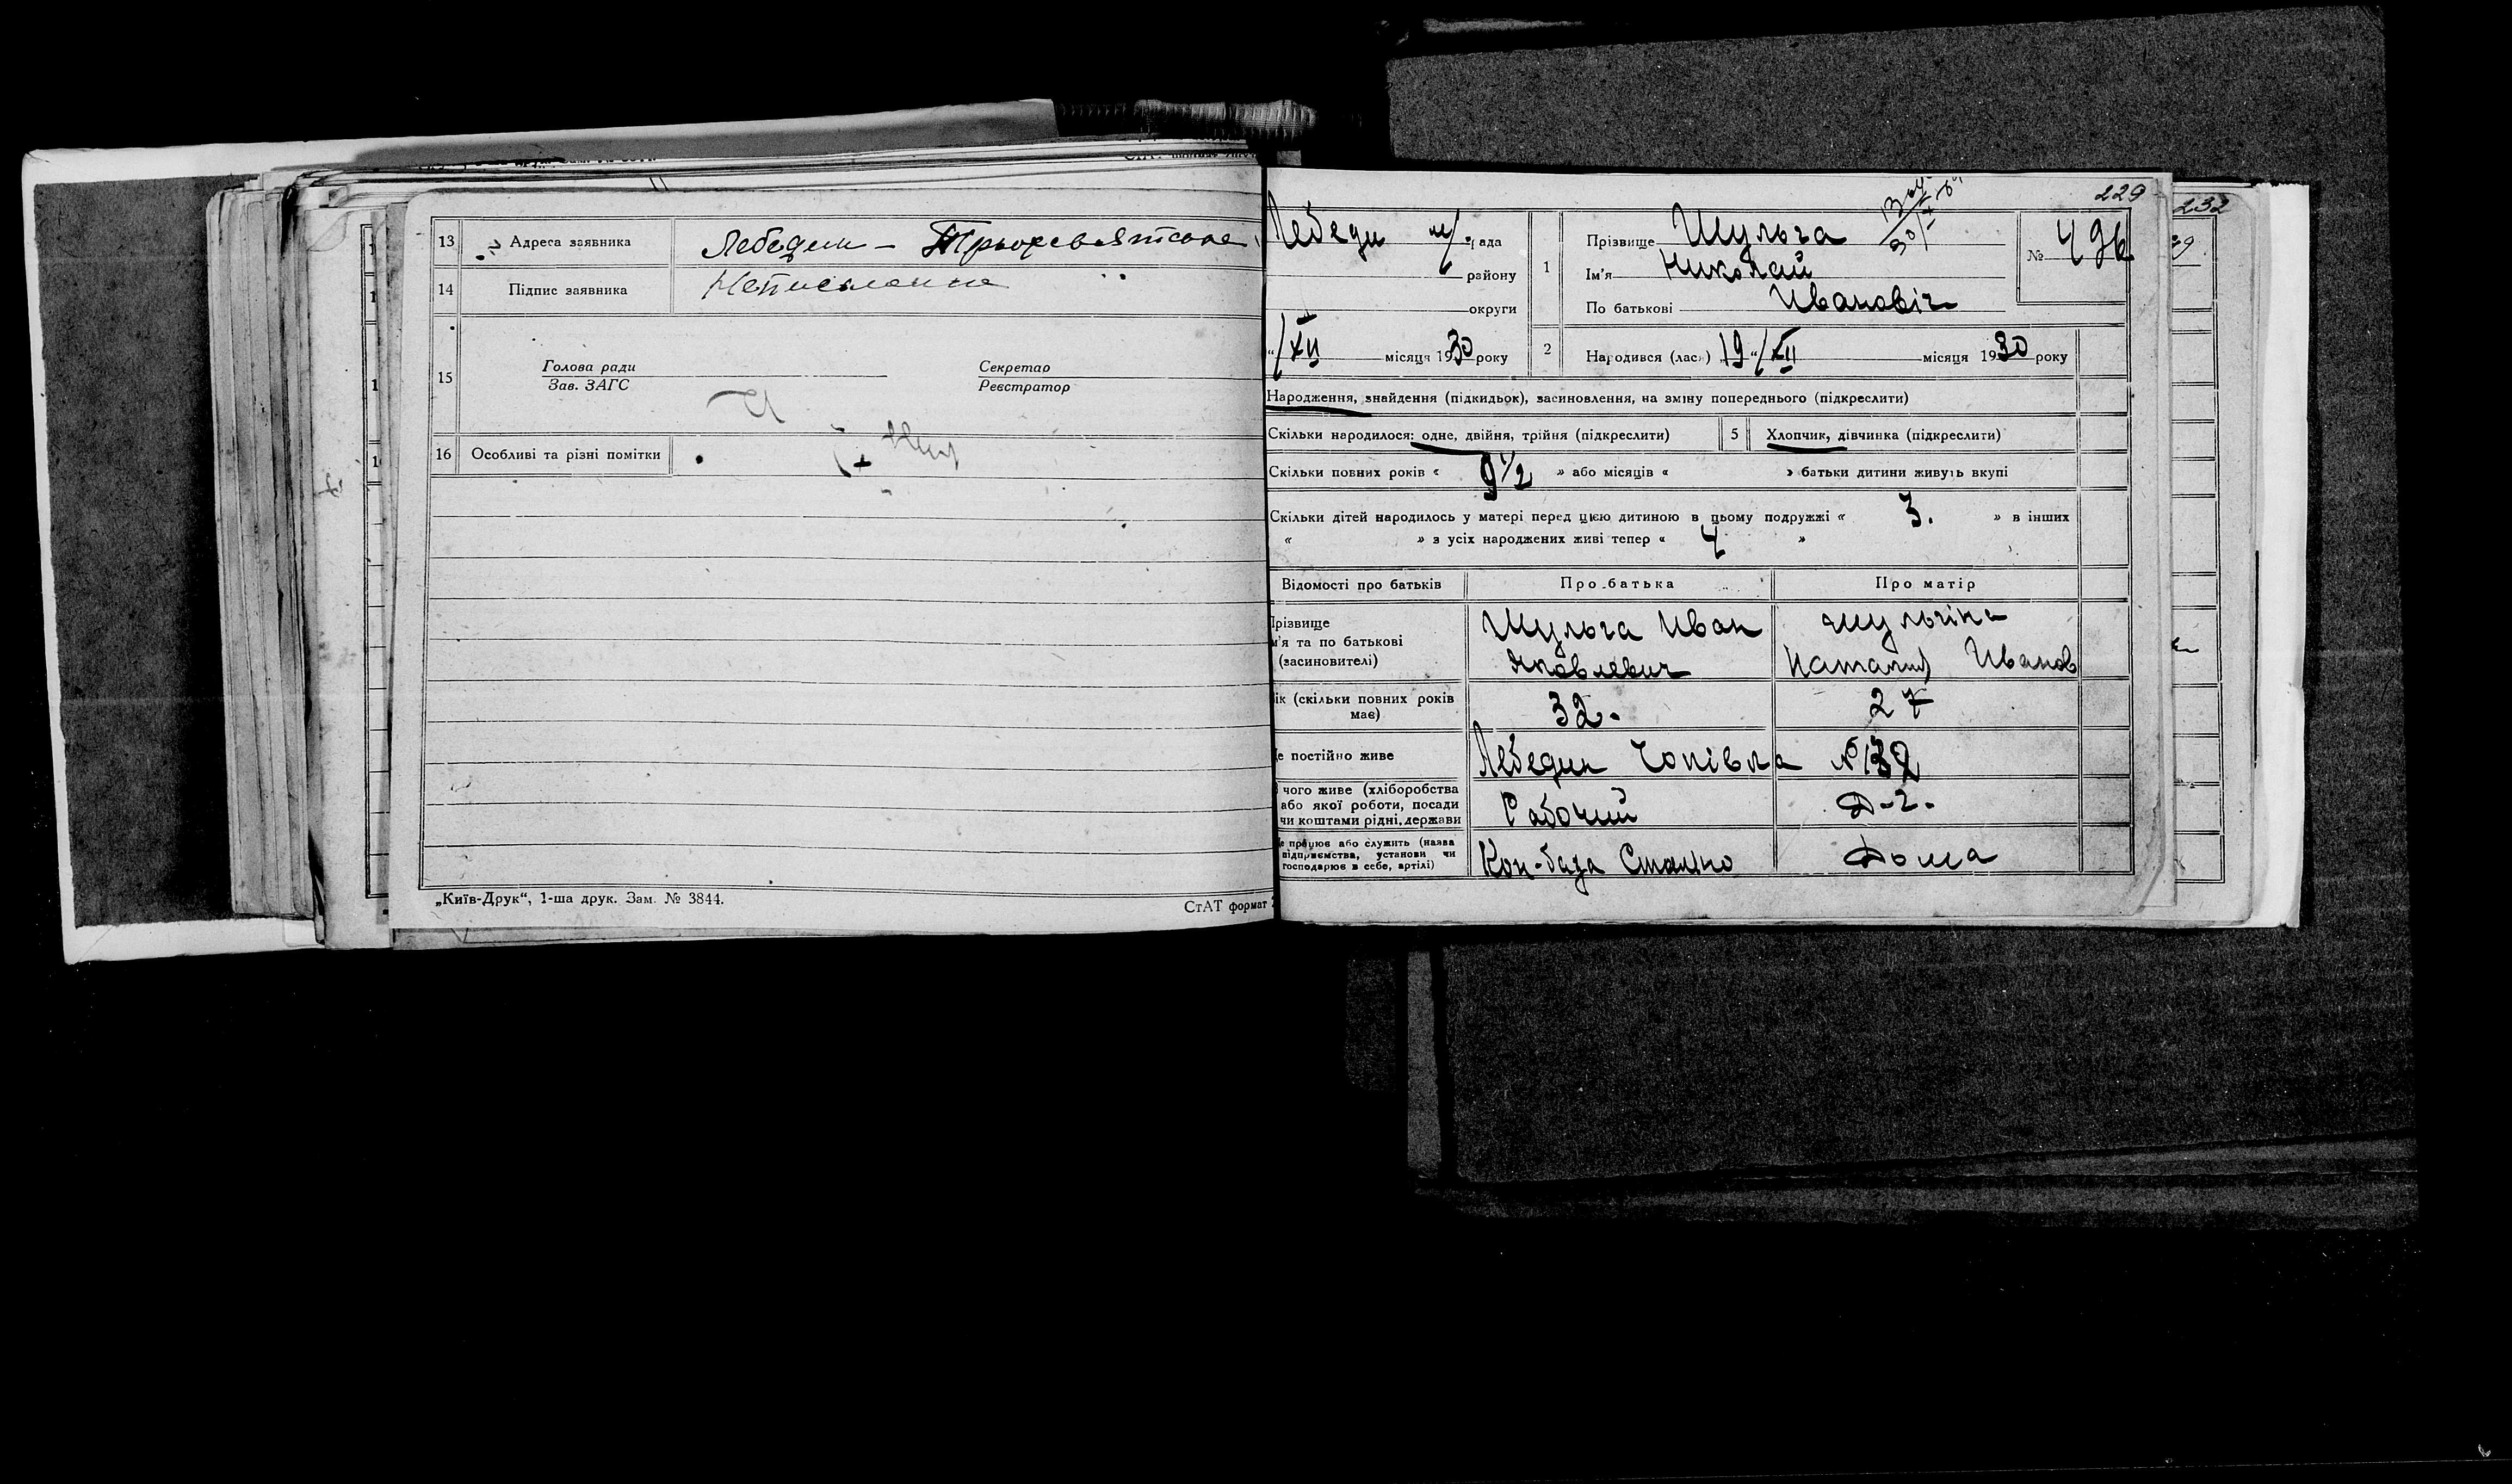 13 Адреса заявника Лебедин - Трьохсвятське
14 Підпис заявника Неписьменна
15 Голова ради Секретар
Зав. ЗАГС Реєстратор
16 Особливі та різні помітки
„Київ-Друк“, 1-ша друк. Зам. № 3844.
СтАТ формат
229
232
Лебеди м/рада
району
округи
1 Прізвище Шульга
Ім'я Николай
По батькові Ивановіч
№ 496
/XII місяця 1930 року
2 Народився (лась) 19 "/XII місяця 1930 року
Народження, знайдення (підкидьок), засиновлення, на зміну попереднього (підкреслити)
Скільки народилося: одне, двійня, трійня (підкреслити) 5 Хлопчик, дівчинка (підкреслити)
Скільки повних років « 9 1/2 » або місяців « » батьки дитини живуть вкупі
Скільки дітей народилось у матері перед цією дитиною в цьому подружжі « 3. » в інших
« » з усіх народжених живі тепер « 4 »
Відомості про батьків Про батька Про матір
Прізвище
м'я та по батькові
(засиновителі)
Шульга Иван
Яковлевич
Шульгіна
Наталия Иванов
ік (скільки повних років
має) 32. 27
е постійно живе Лебедин Чопівка №132
чого живе (хліборобства
або якої роботи, посади
чи коштами рідні, держави
Рабочий Д-г.
е працює або служить (назва
підприємства, установи чи
господарює в себе, артілі)
Кон-база Дома